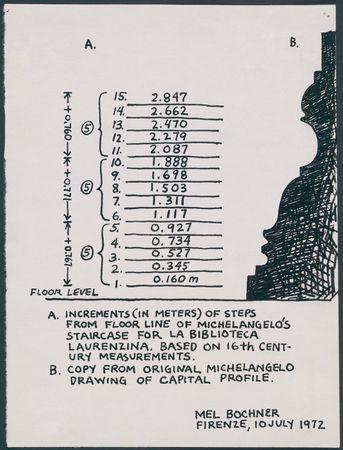 A. B.
15. 2.847
14. 2.662
13. 2.470
12. 2.279
11. 2.087
10. 1.888
9. 1.698
8. 1.503
7. 1.311
6. 1.117
5. 0.927
4. 0.734
3. 0.527
2. 0.345
1. 0.160 m
+0.760
+0.771
+0.767
5
5
5
FLOOR LEVEL
A. INCREMENTS (IN METERS) OF STEPS
FROM FLOOR LINE OF MICHELANGELO'S
STAIRCASE FOR LA BIBLIOTECA
LAURENZINA, BASED ON 16th CENT-
URY MEASUREMENTS.
B. COPY FROM ORIGINAL MICHELANGELO
DRAWING OF CAPITAL PROFILE.
MEL BOCHNER
FIRENZE, 10 JULY 1972